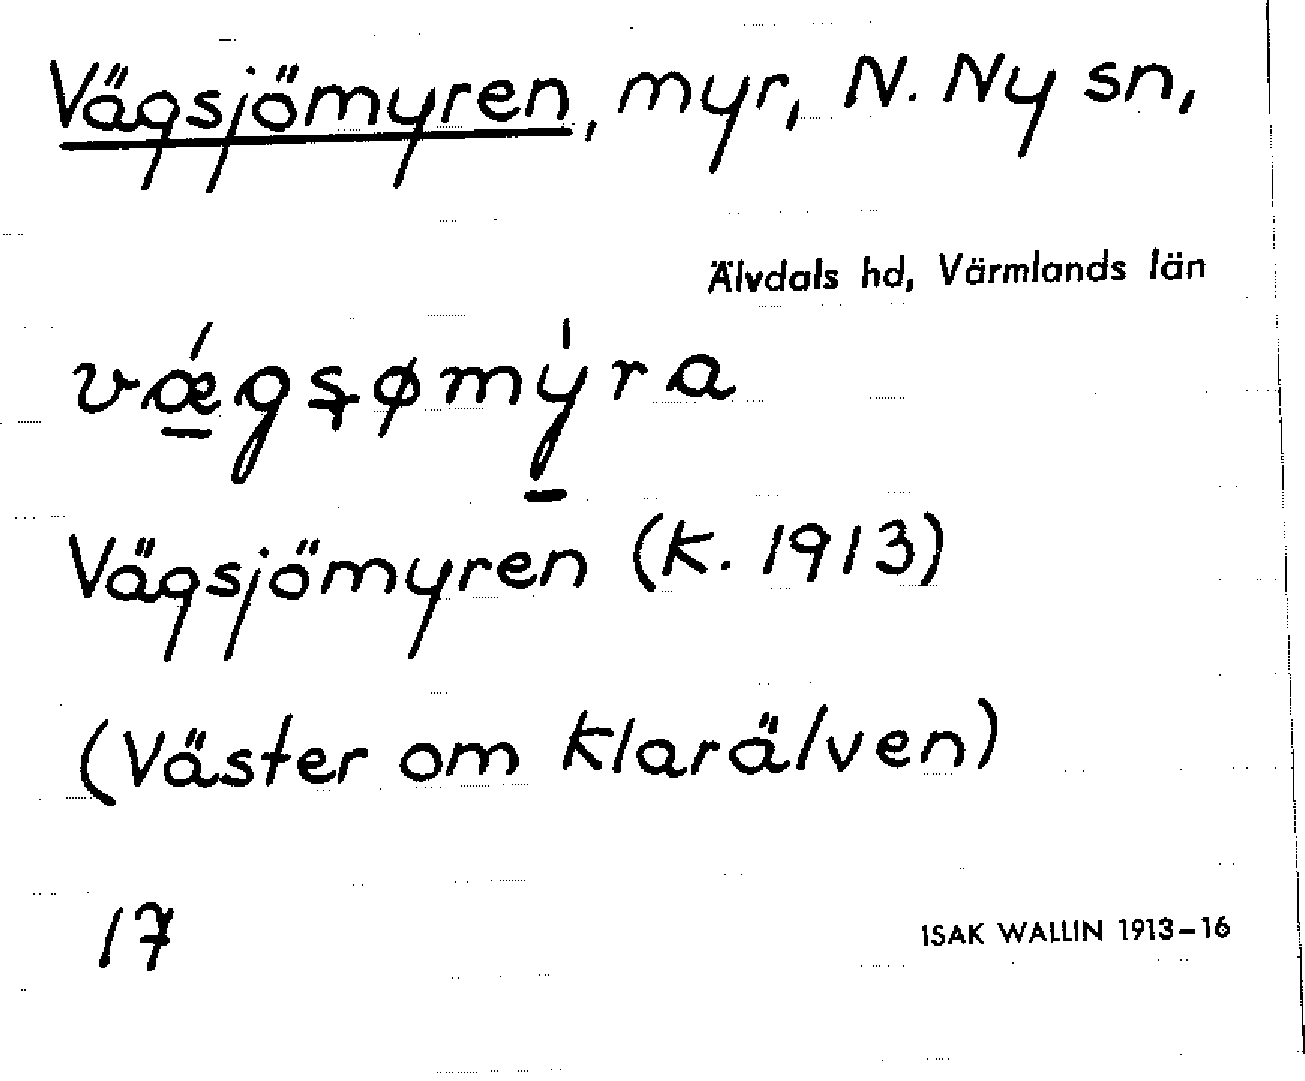 Vägsjömyren, myr, N. Ny sn,
Älvdals hd, Värmlands län
vǽ̠gsømý̠ra
Vägsjömyren (k. 1913)
(Väster om Klarälven)
17
ISAK WALLIN 1913-16